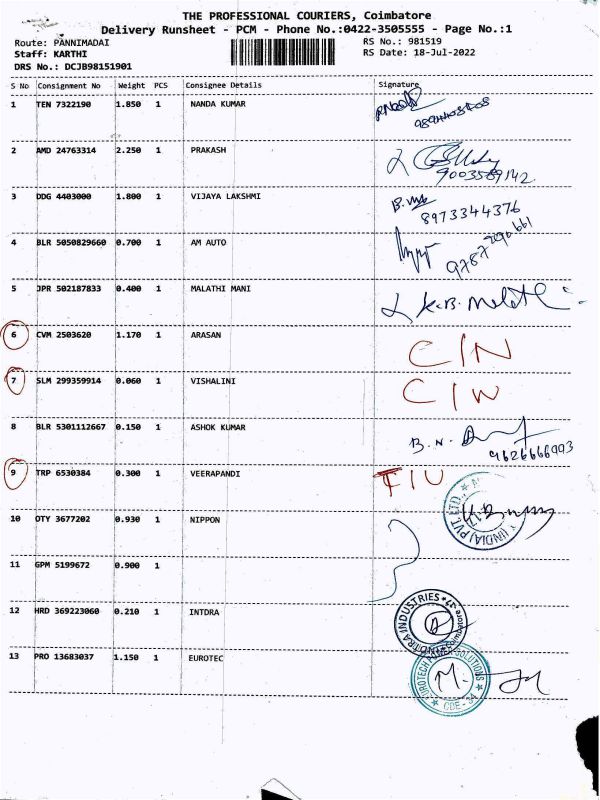 THE PROFESSIONAL COURIERS, Coimbatore
Delivery Runsheet - PCM - Phone No.:0422-3505555 - Page No.:1
Route: PANNIMADAI RS No.: 981519
Staff: KARTHI RS Date: 18-Jul-2022
DRS No.: DCJB98151901
S No Consignment No Weight PCS Consignee Details Signature
1 TEN 7322190 1.850 1 NANDA KUMAR
2 AMD 24763314 2.250 1 PRAKASH
9003589142
3 DDG 4403000 1.800 1 VIJAYA LAKSHMI
8973344376
4 BLR 5050829660 0.700 1 AM AUTO
5 JPR 502187833 0.400 1 MALATHI MANI K.B. Malathi
6 CVM 2503620 1.170 1 ARASAN C/N
7 SLM 299359914 0.060 1 VISHALINI C/W
8 BLR 5301112667 0.150 1 ASHOK KUMAR B.N.
9626666993
9 TRP 6530384 0.300 1 VEERAPANDI
10 OTY 3677202 0.930 1 NIPPON (INDIA) PVT. LTD.
11 GPM 5199672 0.900 1
12 HRD 369223060 0.210 1 INTDRA INDUSTRIES
13 PRO 13683037 1.150 1 EUROTEC SOLUTIONS
CBE - 34